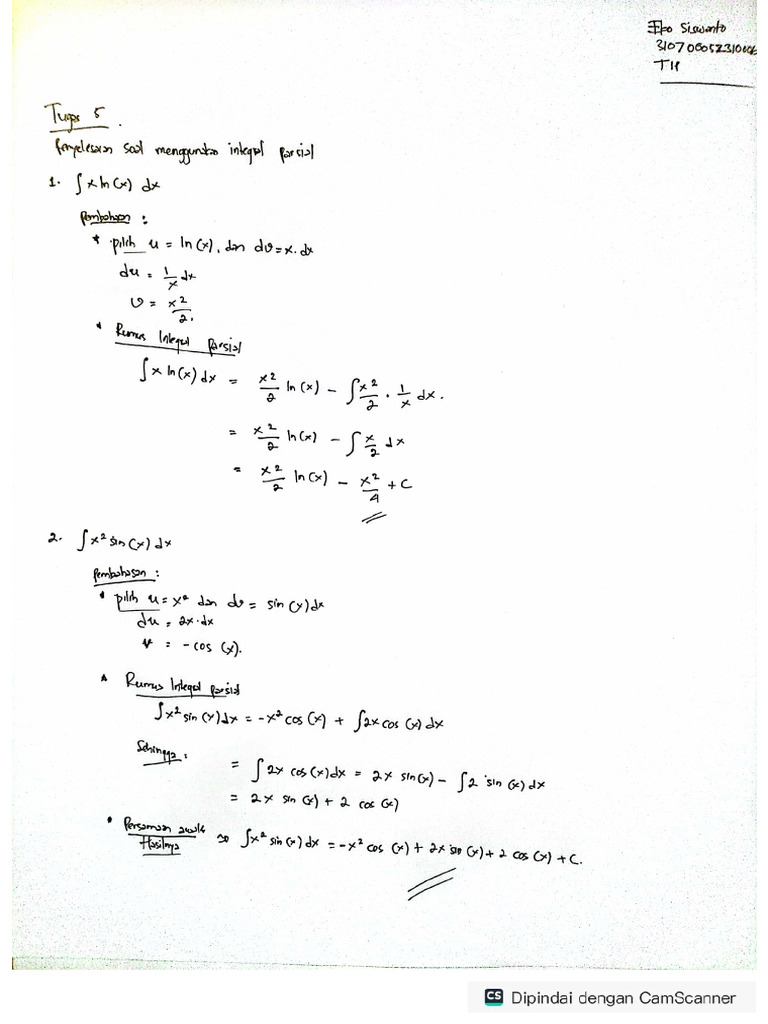 Eko Siswanto
TIP
Tugas 5.
Penyelesaian soal menggunakan integral parsial
1. ∫ x ln(x) dx
Pembahasan :
* pilih u = ln(x), dan dv = x. dx
du = 1/x dx
v = x²/2.
* Rumus Integral parsial
∫ x ln(x) dx = x²/2 ln(x) - ∫ x²/2 . 1/x dx.
= x²/2 ln(x) - ∫ x/2 dx
= x²/2 ln(x) - x²/4 + C
2. ∫ x² sin(x) dx
Pembahasan :
• pilih u = x² dan dv = sin(x) dx
du = 2x.dx
v = -cos(x).
* Rumus Integral parsial
∫ x² sin(x) dx = -x² cos(x) + ∫ 2x cos(x) dx
Sehingga :
= ∫ 2x cos(x) dx = 2x sin(x) - ∫ 2 sin(x) dx
= 2x sin(x) + 2 cos(x)
• Persamaan awal
Hasilnya ⇒ ∫ x² sin(x) dx = -x² cos(x) + 2x sin(x) + 2 cos(x) + C.
CS Dipindai dengan CamScanner